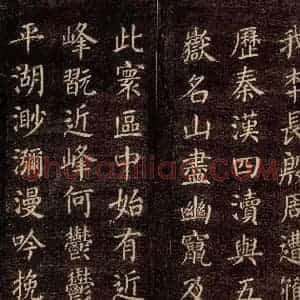 我本長殷周遭
歷秦漢四瀆與五
嶽名山盡幽竄及
此寰區中始有近
峰翫近峰何鬱鬱
平湖渺瀰漫吟挽